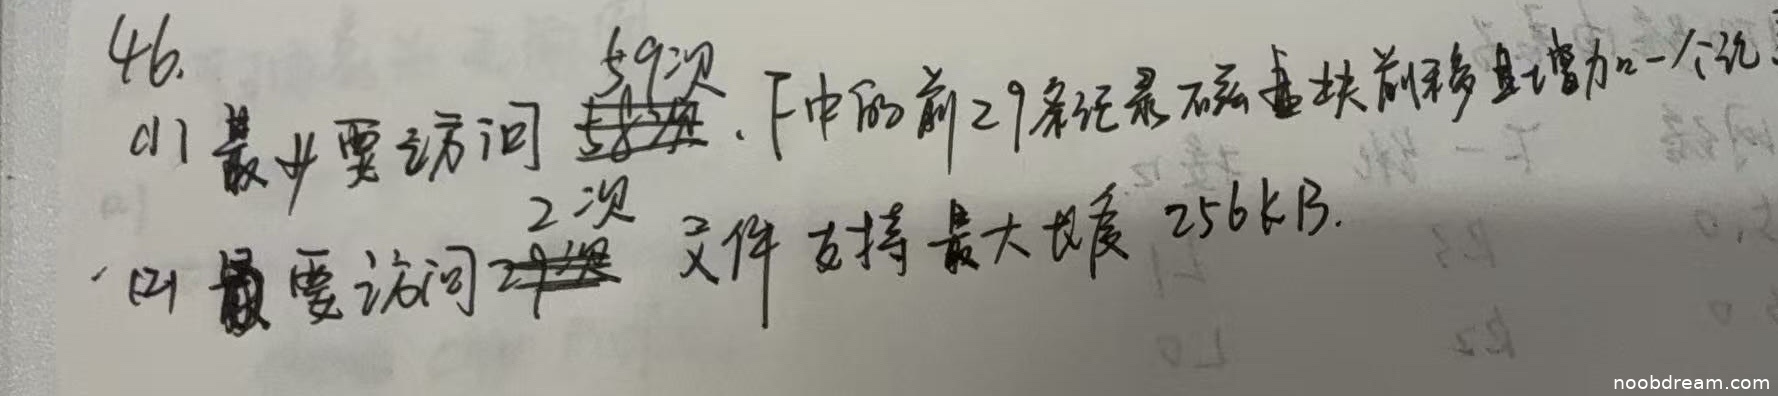 46.
59次
(1) 最少要访问 58次. F中的前29条记录磁盘块前移且增加一个记
2次
(2) 要访问 29次 文件支持最大长度 256KB.
noobdream.com